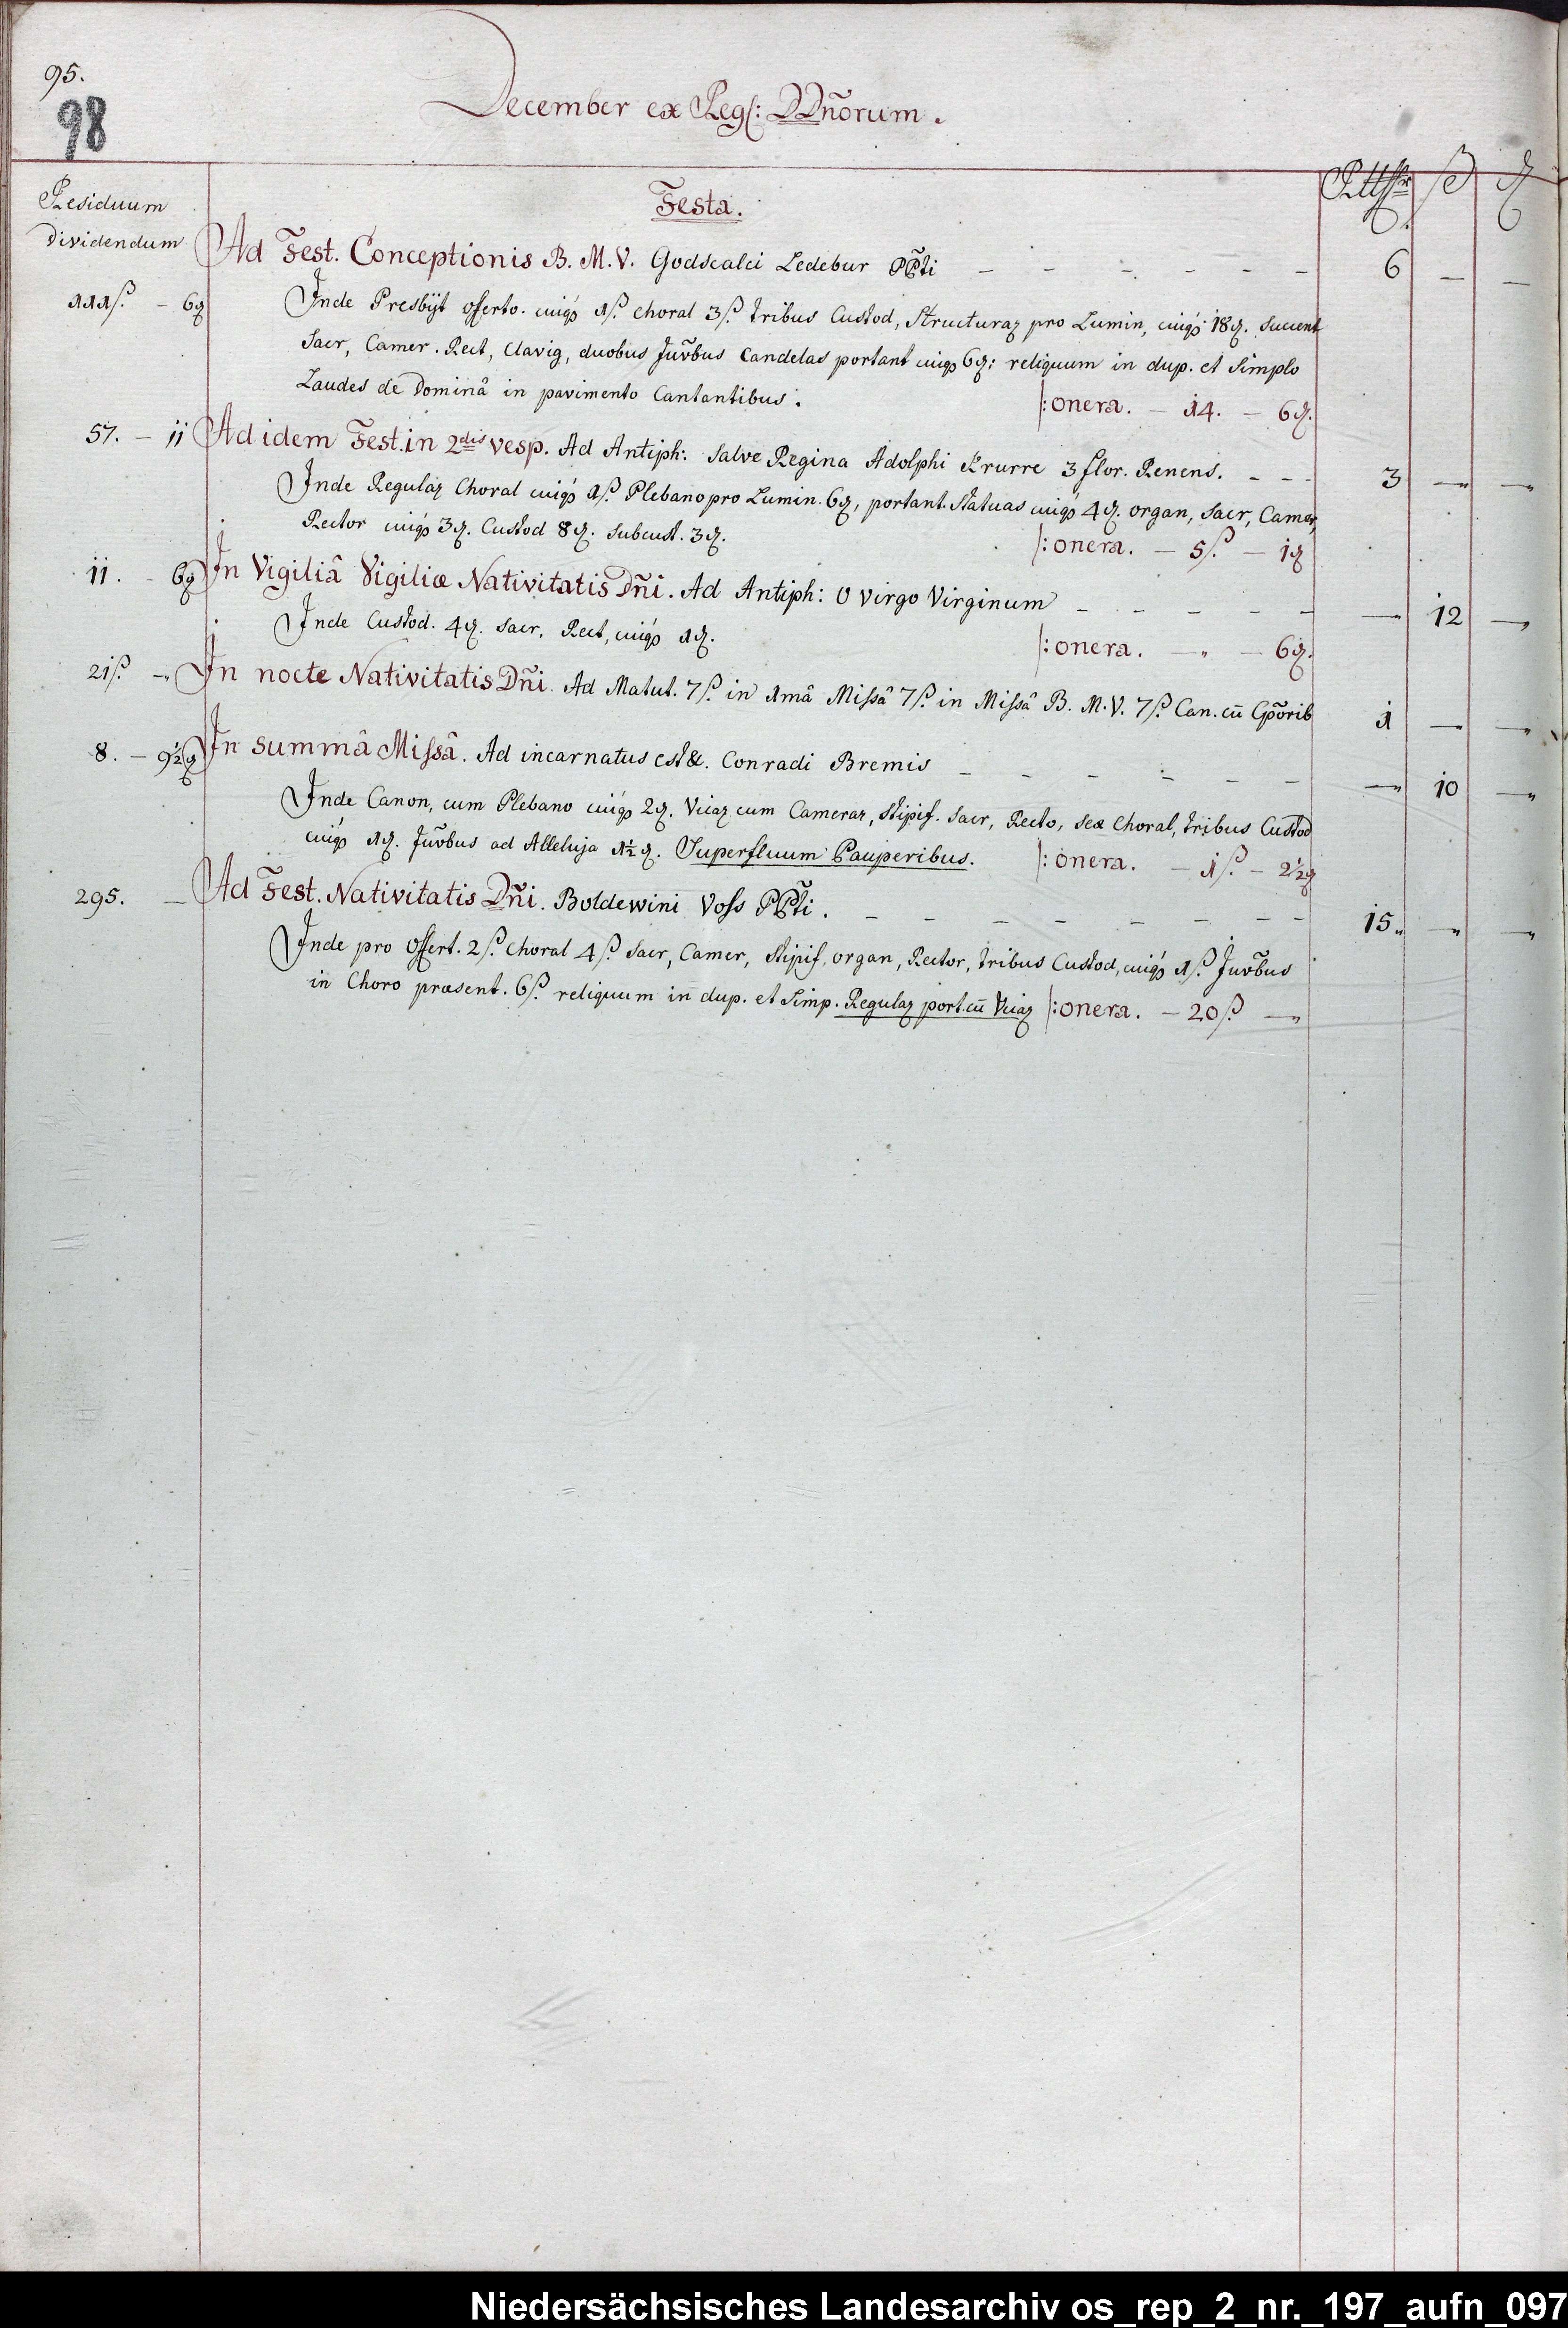 95.
98
December ex Regſ: DDñorum.
Residuum
Dividendum
Festa.
Rtthlr ß ₰
Ad Fest. Conceptionis B. M. V. Godscalci Ledebur PPti - - - - - - 6 — —
111ß. - 6₰ Inde Presbijt offerto. cuigs 1ß. choral 3ß. tribus Custod, Structuraz pro Lumin, cuigs 18₰. Succent
Sacr, Camer. Rect, Clavig, duobus Juvbus Candelas portant cuigs 6₰: reliquum in dup. et Simplo
Laudes de Dominâ in pavimento Cantantibus. |: onera. — 14. — 6₰.
57. - ii Ad idem Fest. in 2dis vesp. Ad Antiph: Salve Regina Adolphi Krurre 3 flor. Renens. - - - 3 — —
Inde Regulaz Choral cuigs 1ß. Plebano pro Lumin. 6₰, portant. Statuas cuigs 4₰. organ, Sacr, Camer,
Rector cuigs 3₰. Custod 8₰. Subcust. 3₰. |: onera. — 5ß. — 1₰
11. - 6₰ In Vigiliâ Vigiliæ Nativitatis Dñi. Ad Antiph: O Virgo Virginum - - - - - — 12 —
Inde Custod. 4₰. Sacr, Rect, cuigs 1₰. |: onera. —„ — 6₰.
21ß. -„ In nocte Nativitatis Dñi. Ad Matut. 7ß. in 1mâ Missâ 7ß. in Missâ B. M. V. 7ß. Can. cũ Cporib 1 — —
8. - 9½₰ In summâ Missâ. Ad incarnatus est &. Conradi Bremis - - - - - - — 10 —
Inde Canon, cum Plebano cuigs 2₰. Vicaz cum Cameraz, Stipif. Sacr, Recto, sex Choral, tribus Custod
cuigs 1₰. Juvbus ad Alleluja 1½₰. Superfluum Pauperibus. |: onera. — 1ß. - 2½₰
295. — Ad Fest. Nativitatis Dñi. Boldewini Voss PPti. - - - - - - - - 15„ — —
Inde pro Offert. 2ß. Choral 4ß. Sacr, Camer, Stipif, organ, Rector, tribus Custod, cuigs 1ß. Juvbus
in Choro præsent. 6ß. reliquum in dup. et Simp. Regulaz port. cũ Vicaz |: onera. — 20ß. —
Niedersächsisches Landesarchiv os_rep_2_nr._197_aufn_097